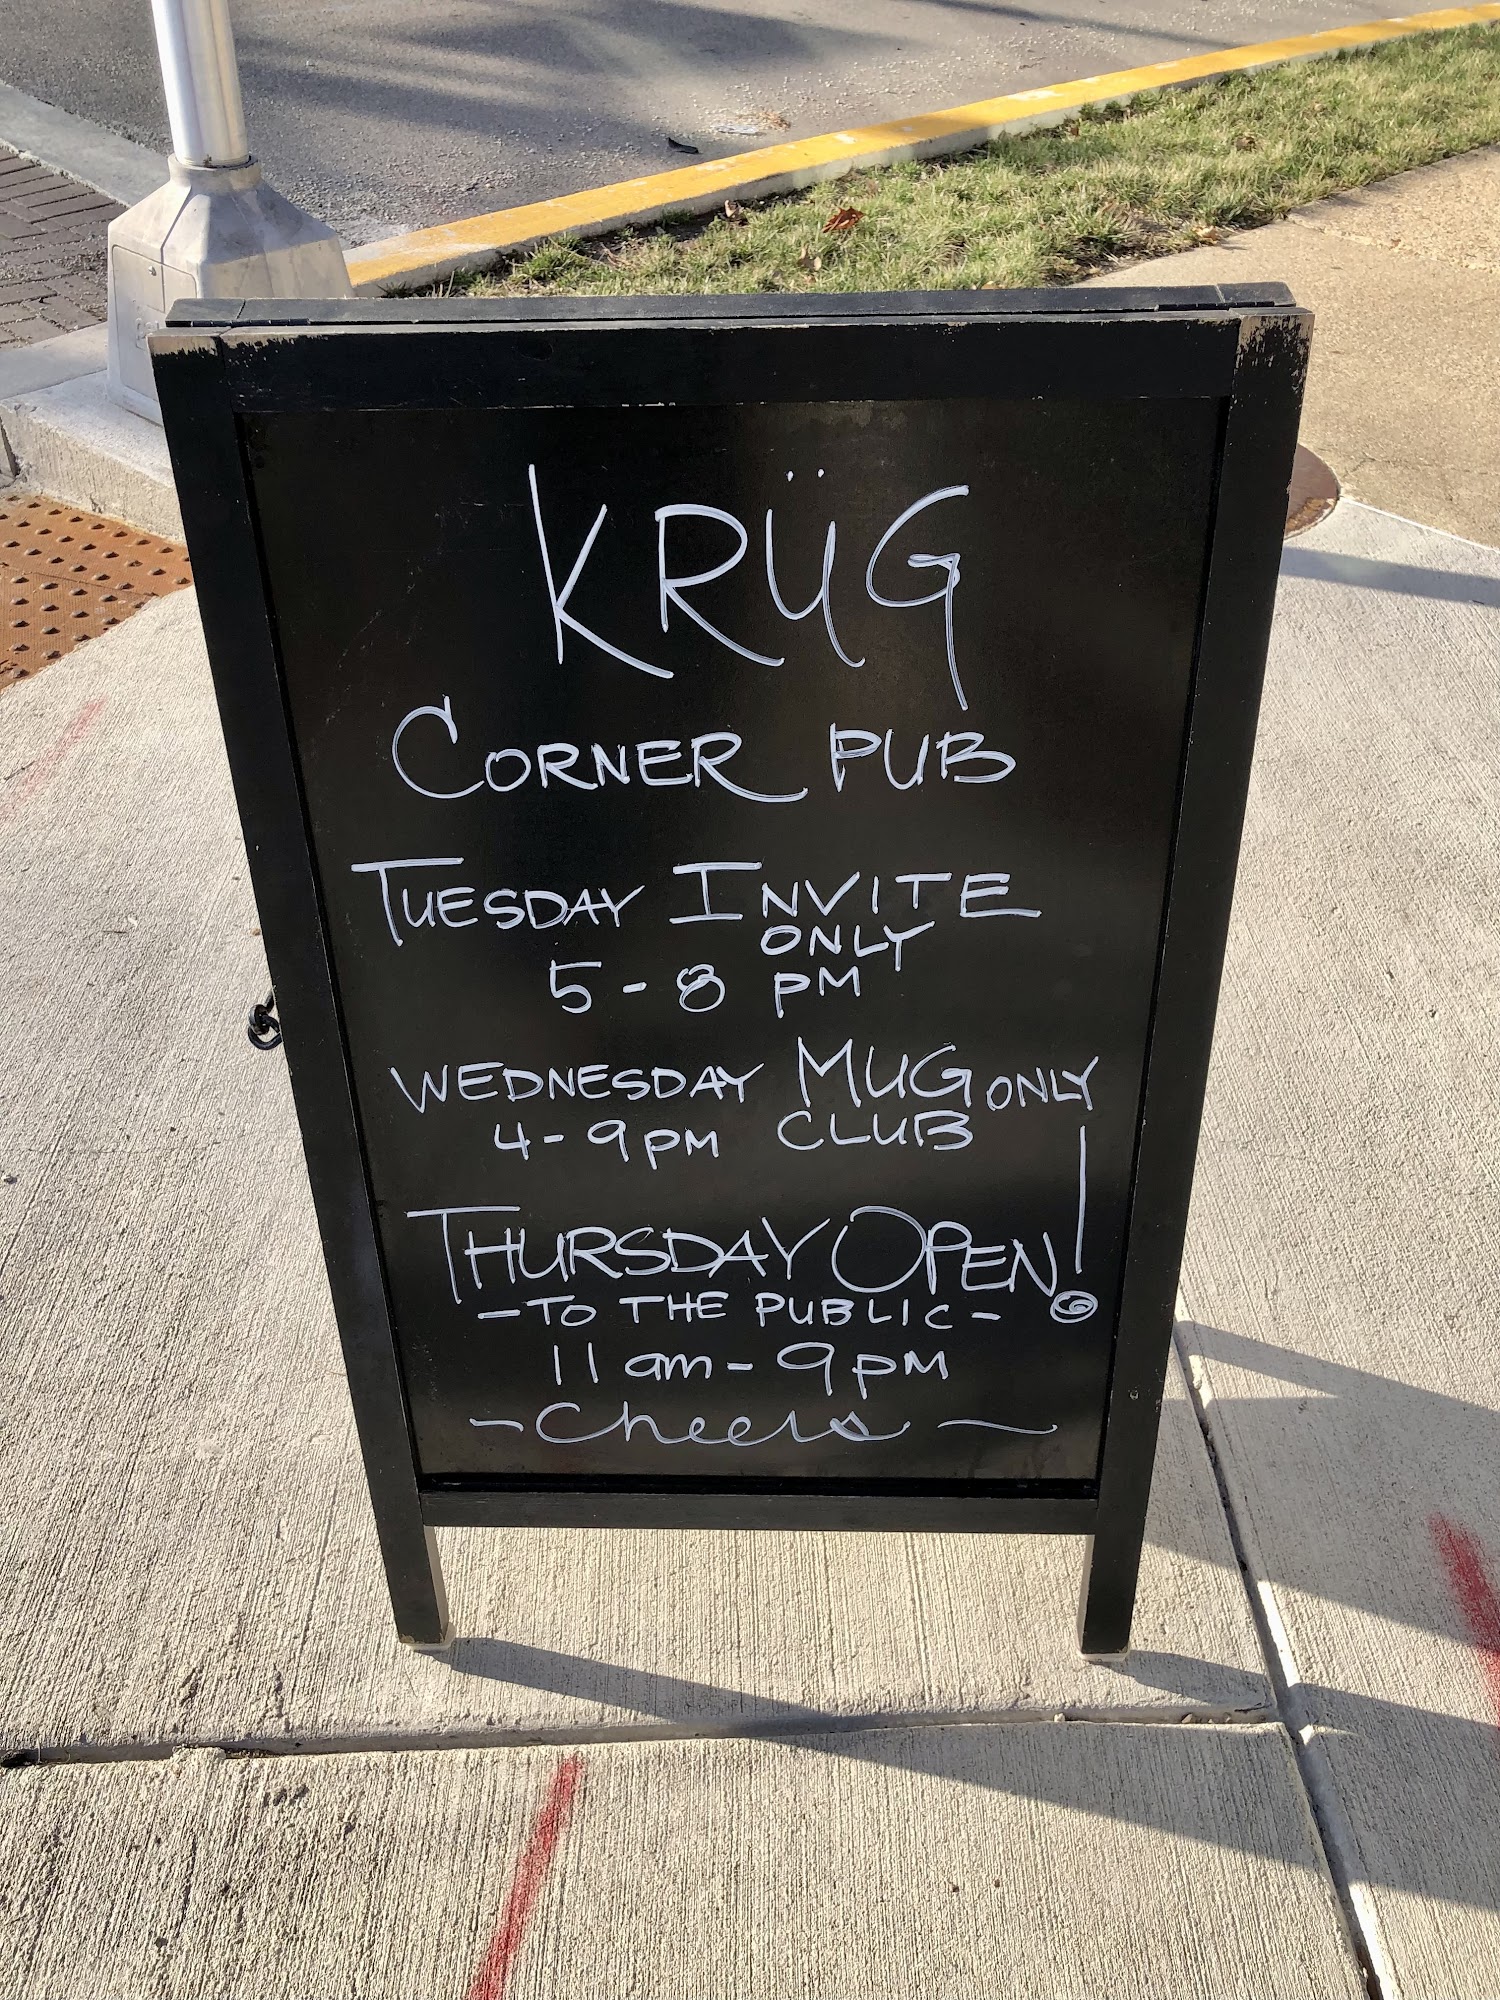 KRÜG
CORNER PUB
TUESDAY INVITE
ONLY
5-8 PM
WEDNESDAY MUG ONLY
4-9PM CLUB
THURSDAY OPEN!
-TO THE PUBLIC-
11 am-9PM
~Cheers~